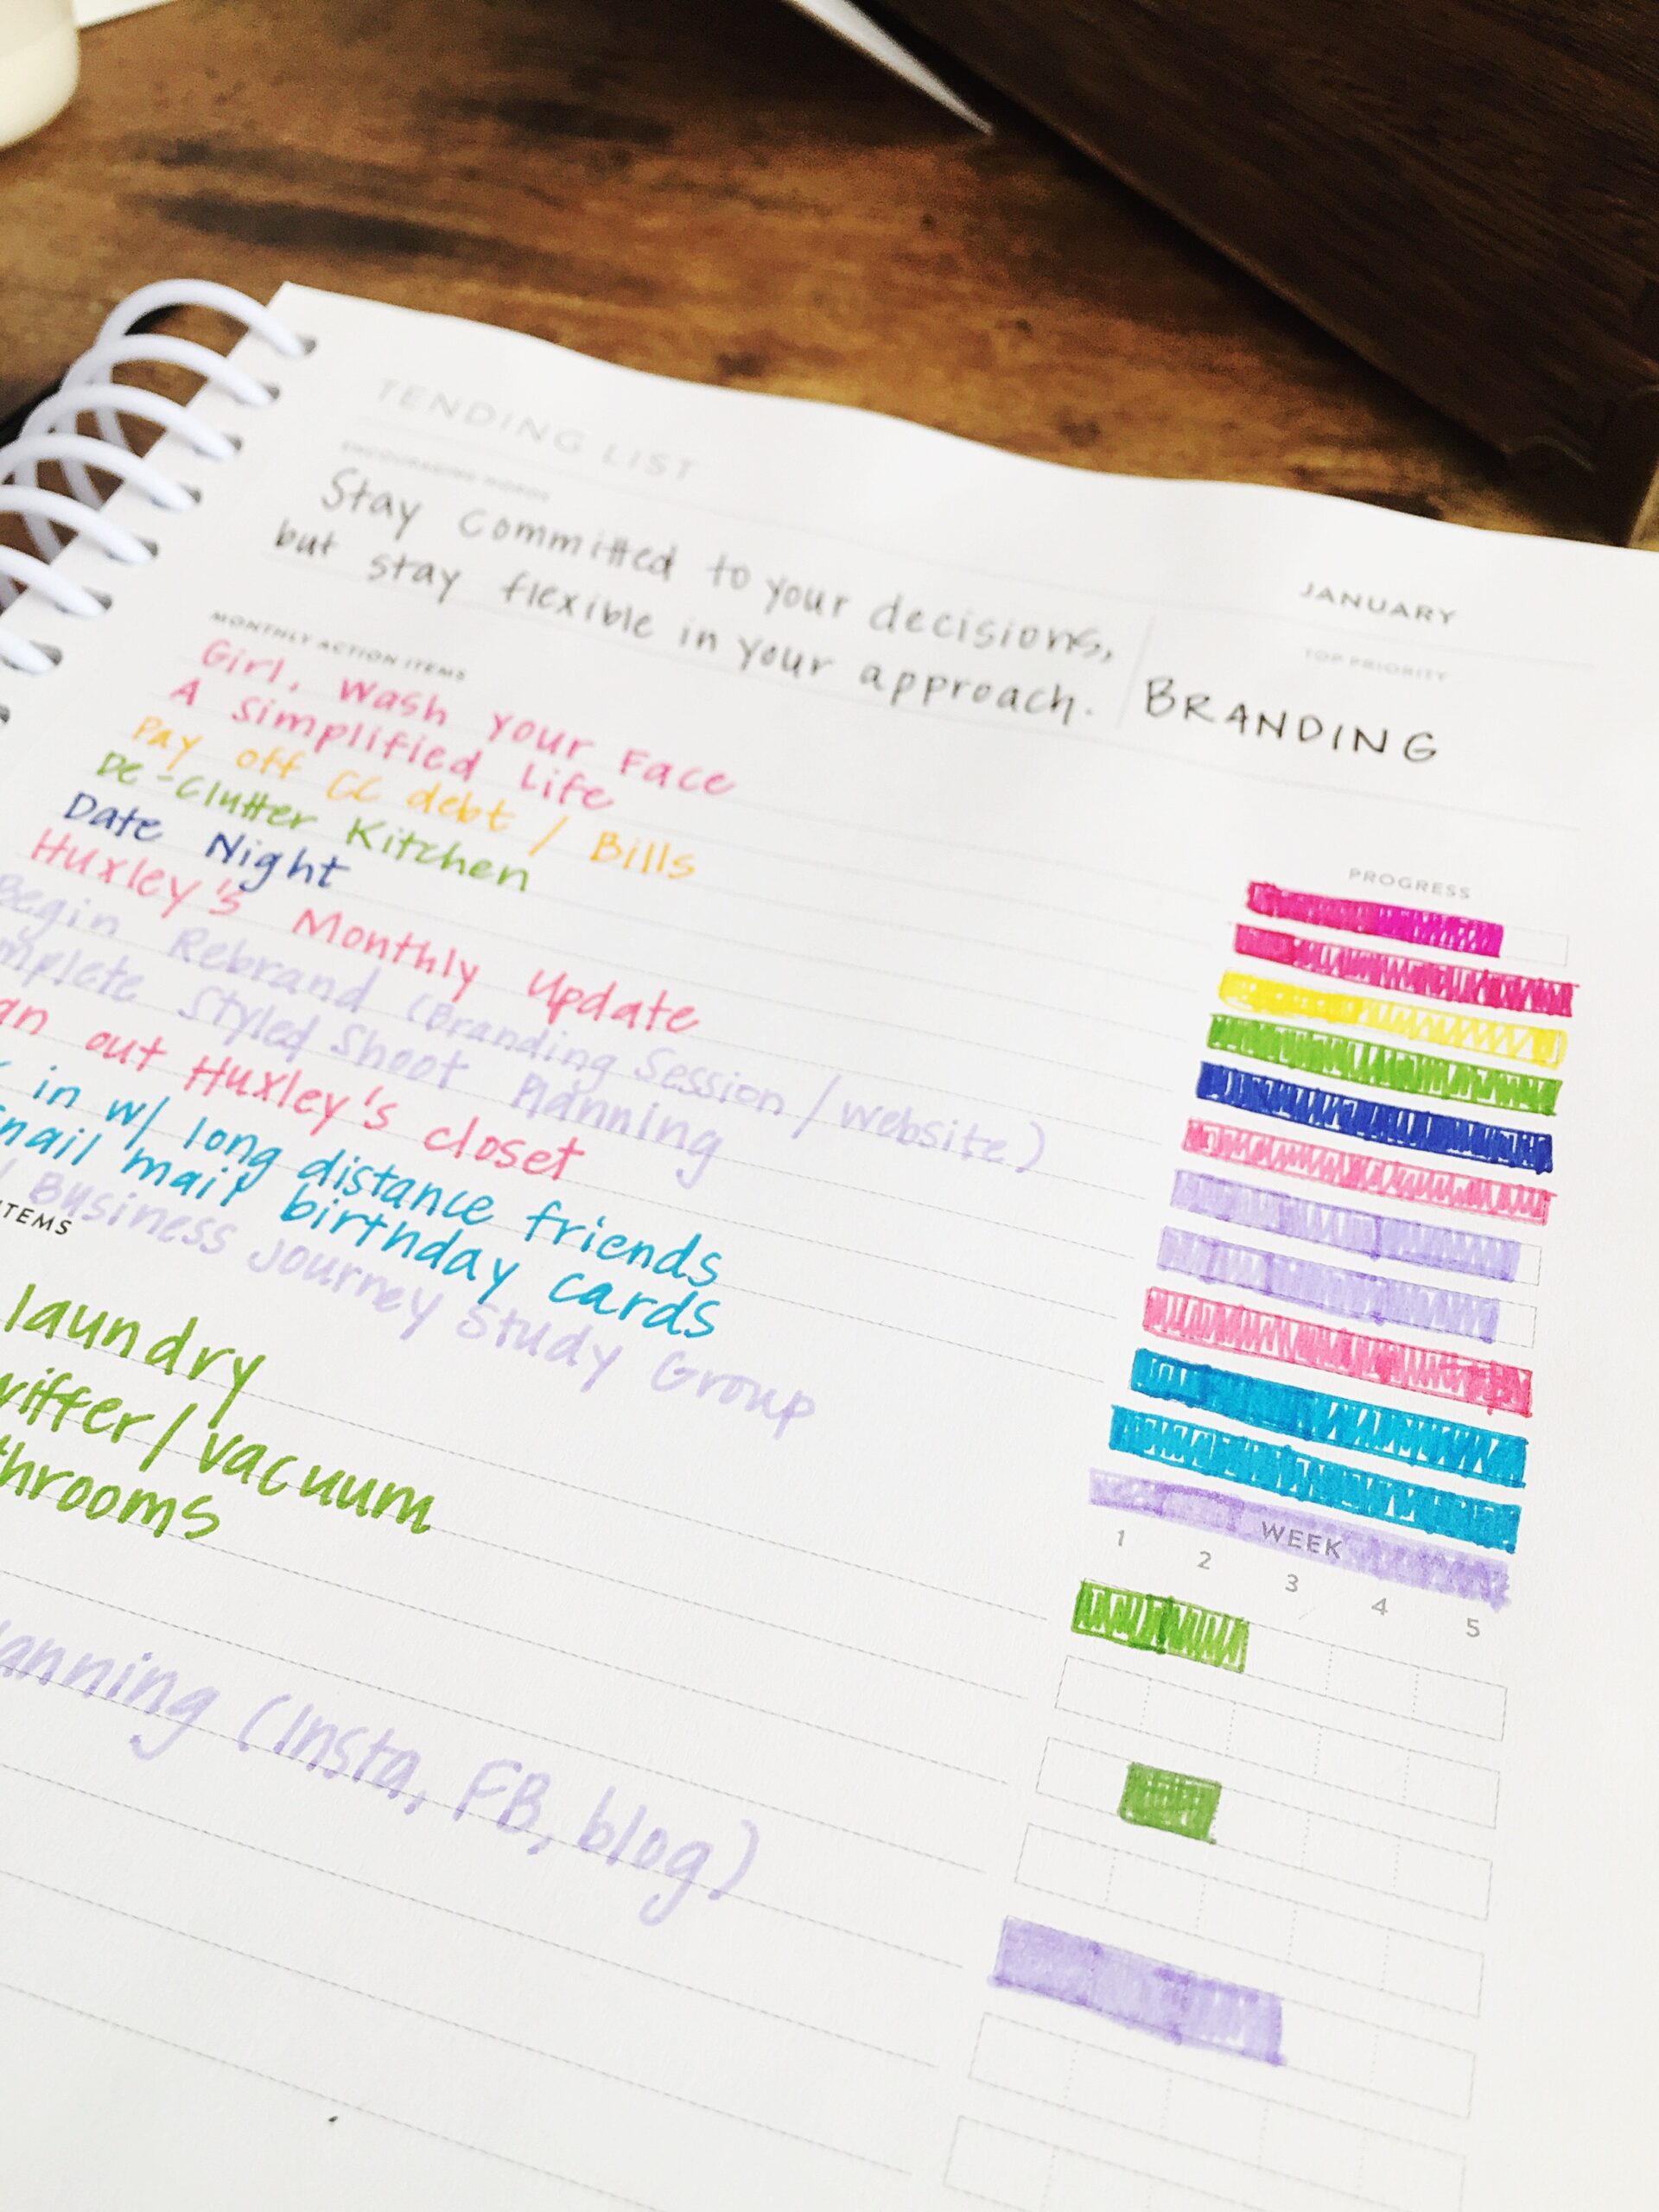 TENDING LIST
ENCOURAGING WORDS
Stay committed to your decisions,
but stay flexible in your approach.
JANUARY
TOP PRIORITY
BRANDING
MONTHLY ACTION ITEMS
PROGRESS
Girl, Wash Your Face
A Simplified Life
Pay off CC debt / Bills
De-Clutter Kitchen
Date Night
Huxley's Monthly Update
Begin Rebrand (Branding Session / website)
mplete Styled Shoot Planning
an out Huxley's closet
in w/ long distance friends
nail mail birthday cards
Business Journey Study Group
ITEMS
WEEK
1 2 3 4 5
laundry
wiffer / vacuum
throoms
anning (Insta, FB, blog)